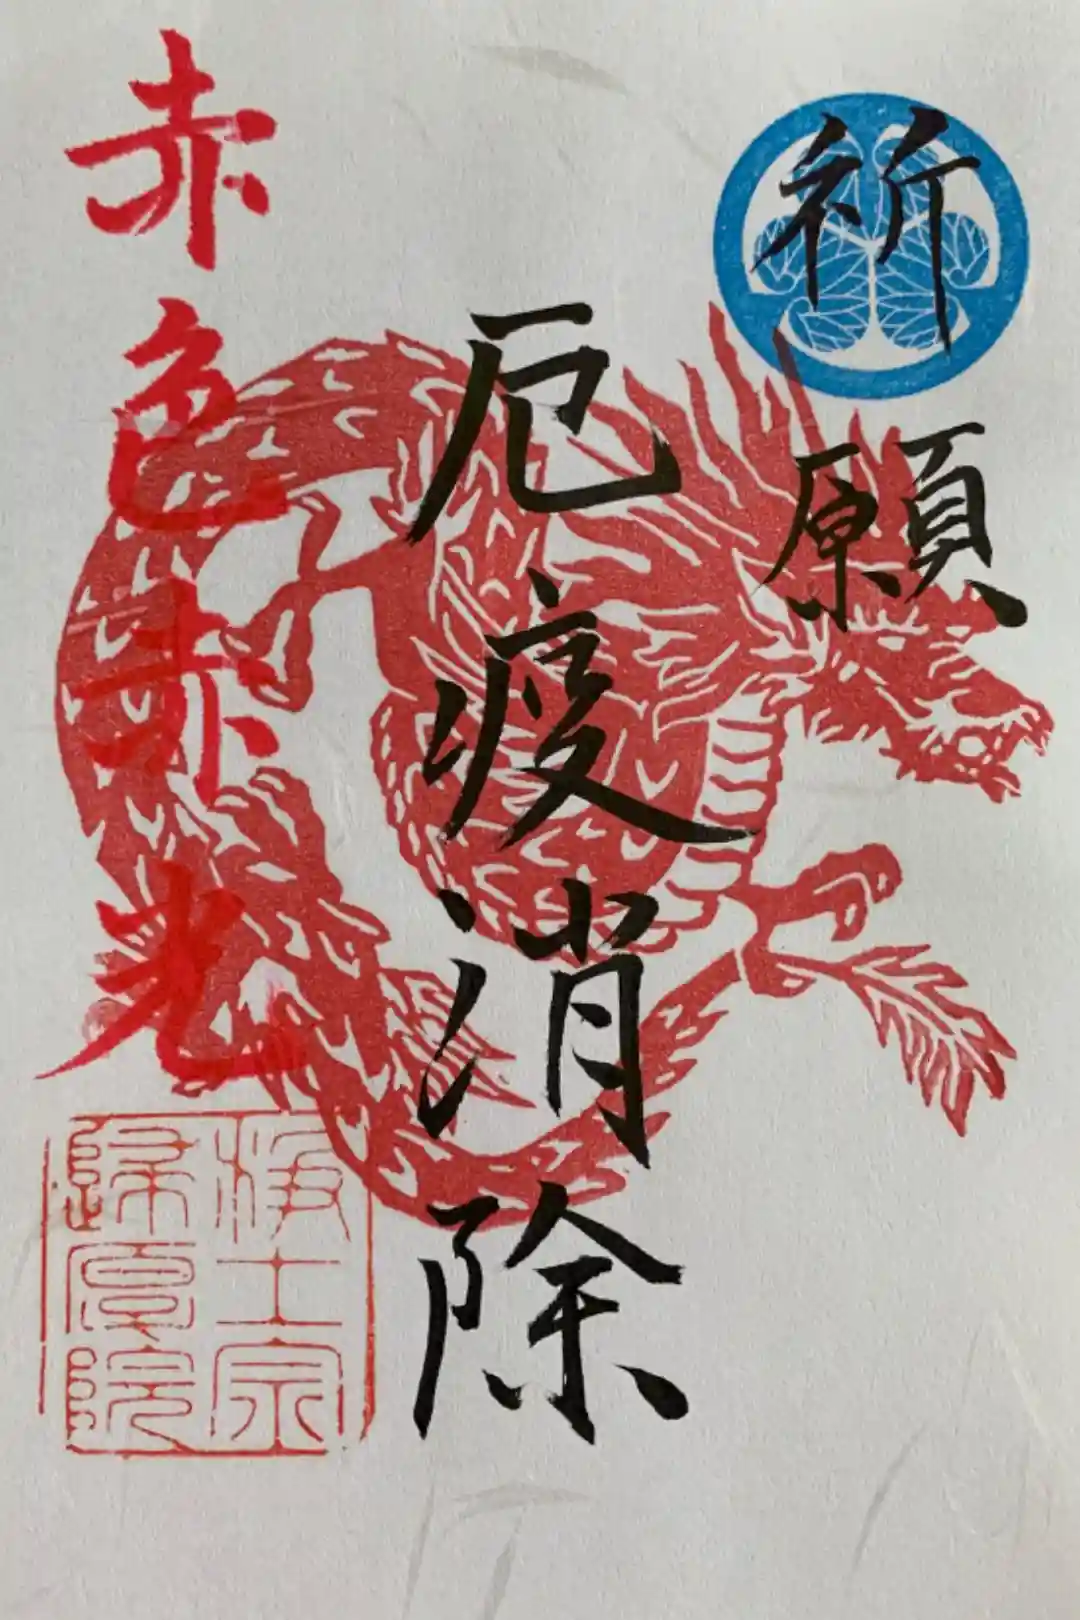 祈願
厄疫消除
赤色赤光
浄土宗
歸命院